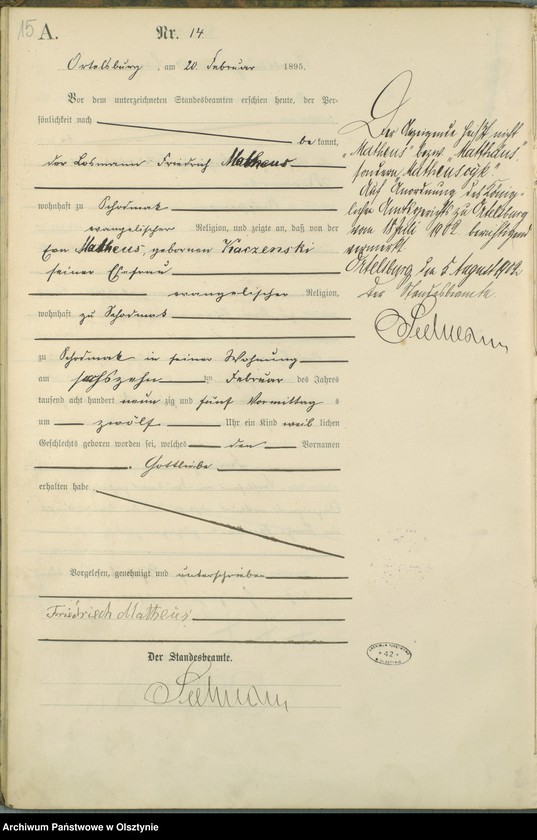 15
A.
Nr. 14
Ortelsburg, am 20. Februar 1895.
Vor dem unterzeichneten Standesbeamten erschien heute, der Per-
sönlichkeit nach
be kannt,
der Losmann Friedrich Matheus
wohnhaft zu Schodmak
evangelischer Religion, und zeigte an, daß von der
Frau Matheus, geborenen Kaczenski
seiner Ehefrau
evangelischer Religion,
wohnhaft zu Schodmak
zu Schodmak in seiner Wohnung
am sechszehn ten Februar des Jahres
tausend acht hundert neun zig und fünf Vormittag s
um zwölf Uhr ein Kind weib lichen
Geschlechts geboren worden sei, welches den Vornamen
Gottliebe
erhalten habe
Vorgelesen, genehmigt und unterschrieben
Friedriech Matheus
Der Standesbeamte.
Seelmann
Der Anzeigende heißt nicht
"Matheus" bezw. "Matthäus"
sondern
Auf Anordnung des König-
lichen Amtsgerichts zu Ortelsburg
vom Juli 1902 berichtigend
vermerkt.
Ortelsburg den 5. August 1902
Der Standesbeamte.
Seelmann
42
Archiwum Państwowe w Olsztynie